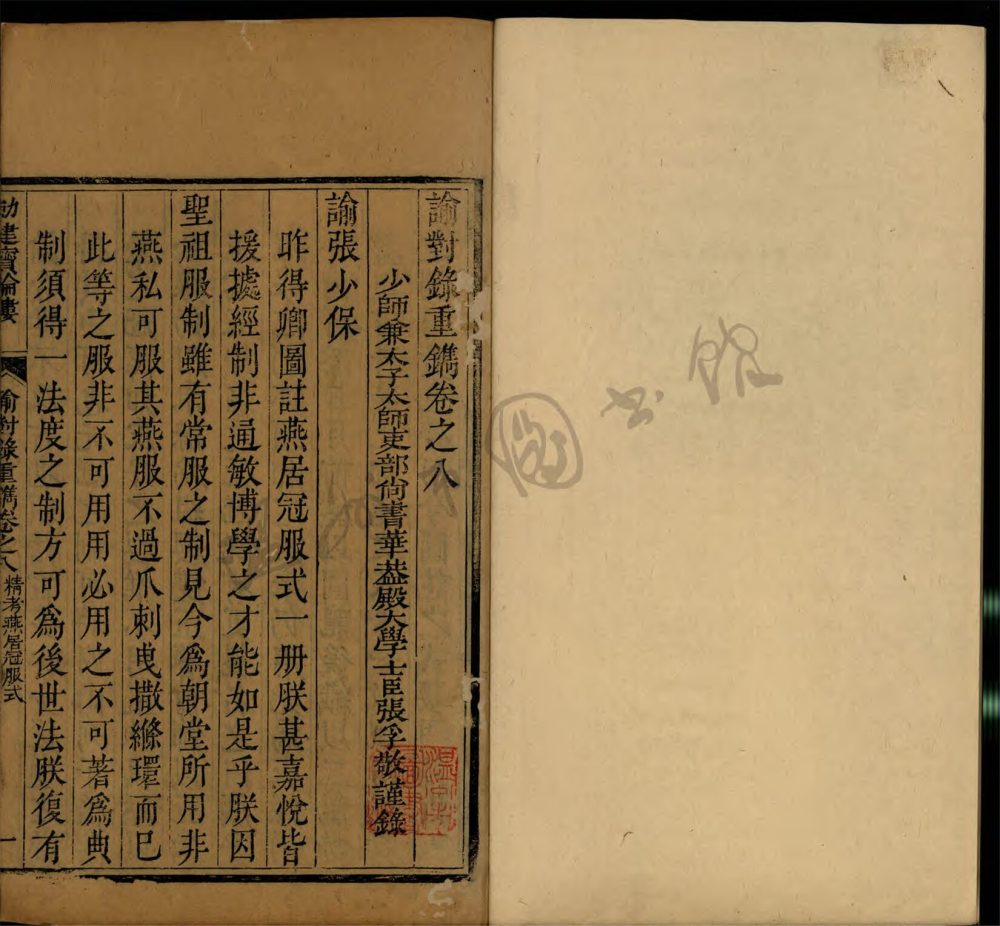 諭對錄重鐫卷之八
少師兼太子太師吏部尚書華葢殿大學士臣張孚敬謹錄
諭張少保
昨得卿圖註燕居冠服式一册朕甚嘉悅皆
援據經制非通敏博學之才能如是乎朕因
聖祖服制雖有常服之制見今爲朝堂所用非
燕私可服其燕服不過爪刺曳撒縧環而已
此等之服非不可用用必用之不可著爲典
制須得一法度之制方可爲後世法朕復有
勅建寳綸樓
諭對錄重鐫卷之八
精考燕居冠服式
一